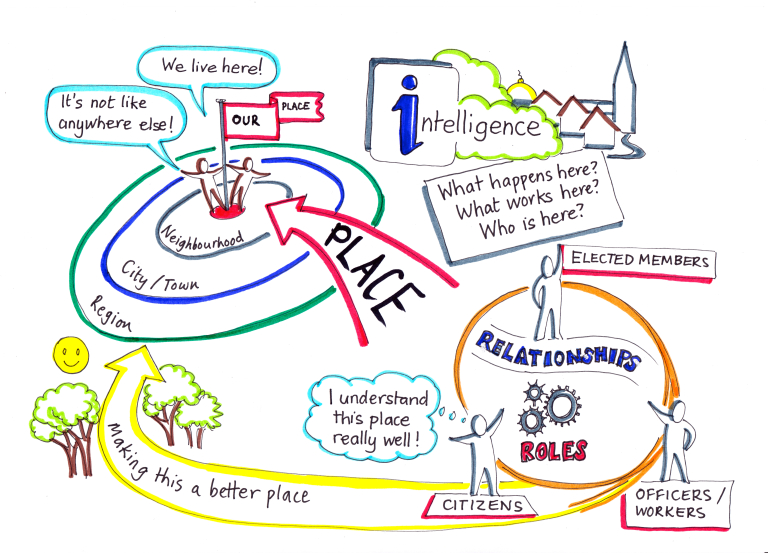 We live here!
It's not like
anywhere else!
OUR
PLACE
Neighbourhood
City/Town
Region
PLACE
intelligence
What happens here?
What works here?
Who is here?
ELECTED MEMBERS
RELATIONSHIPS
ROLES
I understand
this place
really well!
CITIZENS
OFFICERS/
WORKERS
Making this a better place